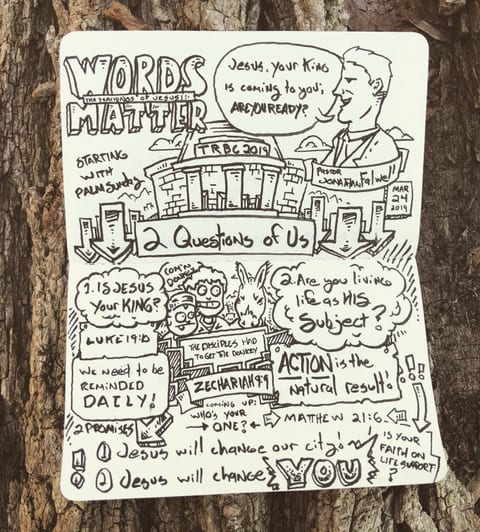 WORDS
THE TEACHINGS OF JESUS!!!
MATTER
JESUS, YOUR KING
IS COMING TO YOU;
ARE YOU READY?
STARTING
WITH
PALM SUNDAY
TRBC 2019
PASTOR
JONATHAN FALWELL
MAR
24
2019
2 QUESTIONS OF US
1. IS JESUS
YOUR KING?
LUKE 19:10
WE NEED TO BE
REMINDED
DAILY!
COM'N
DONKEY
THE DISCIPLES HAD
TO GET THE DONKEY
ZECHARIAH 9:9
COMING UP:
WHO'S YOUR
ONE?
2. ARE YOU LIVING
LIFE AS HIS
SUBJECT?
ACTION IS THE
NATURAL RESULT!
MATHEW 21:6
2 PROMISES
1 JESUS WILL CHANGE OUR CITY!
2 JESUS WILL CHANGE YOU
IS YOUR
FAITH ON
LIFE SUPPORT
?